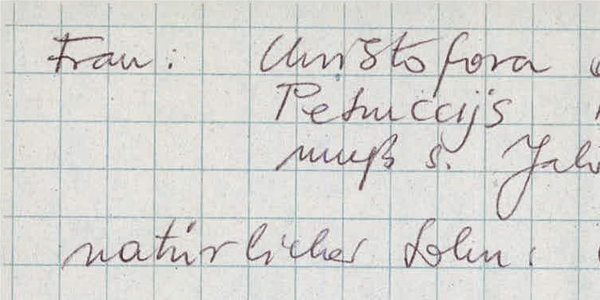 Frau: Christofora
Petruccijs
muß s. Jah
natürlicher Sohn: